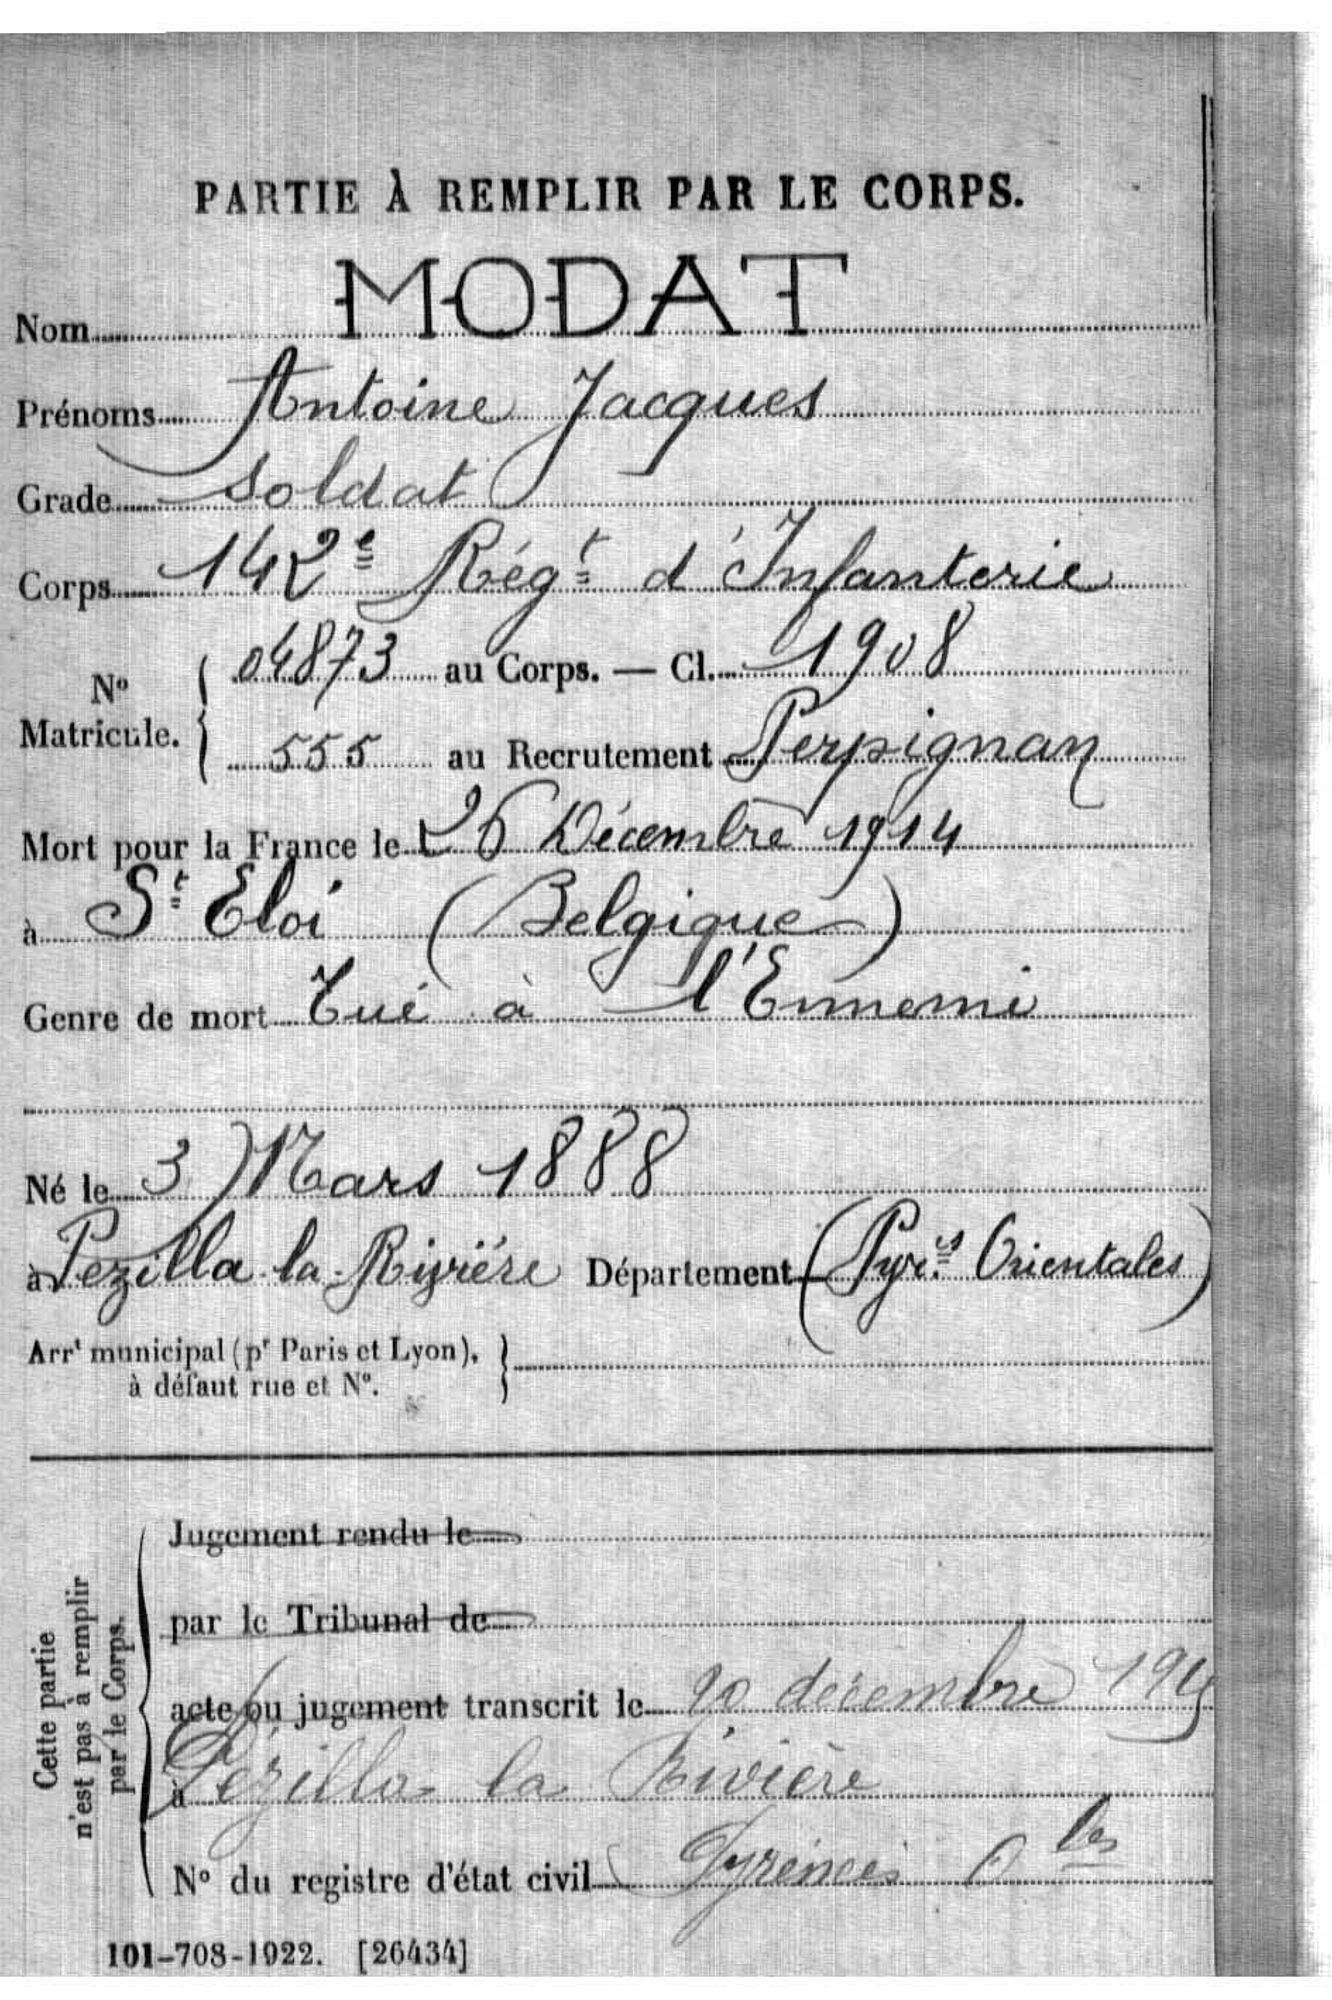 PARTIE À REMPLIR PAR LE CORPS.
Nom MODAT
Prénoms Antoine Jacques
Grade Soldat
Corps 142e Régt d'Infanterie
No Matricule. { 04873 au Corps. — Cl. 1908
555 au Recrutement Perpignan
Mort pour la France le 26 Décembre 1914
à St Eloi (Belgique)
Genre de mort Tué à l'Ennemi
Né le 3 Mars 1888
à Pezilla la Rivière Département (Pyr.es Orientales)
Arrt municipal (pr Paris et Lyon), }
à défaut rue et No.
Cette partie
n'est pas à remplir
par le Corps.
Jugement rendu le
par le Tribunal de
acte ou jugement transcrit le décembre
à Pézilla la Rivière
No du registre d'état civil Pyrénées O les
101-708-1922. [26434]